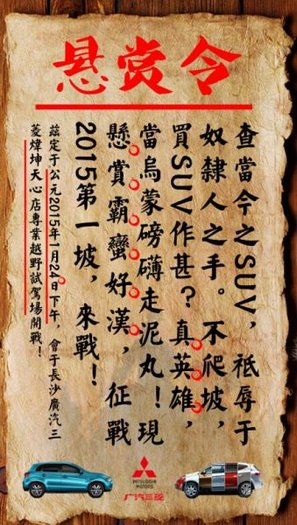 悬赏令
查當今之SUV，祗辱于
奴隸人之手。不爬坡，
買SUV作甚？真英雄，
當烏蒙磅礴走泥丸！現
懸賞霸蠻好漢，征戰
2015第一坡，來戰！
茲定于公元2015年1月24日下午，會于長沙廣汽三
菱煒坤天心店專業越野試駕場開戰！
MITSUBISHI
MOTORS
广汽三菱